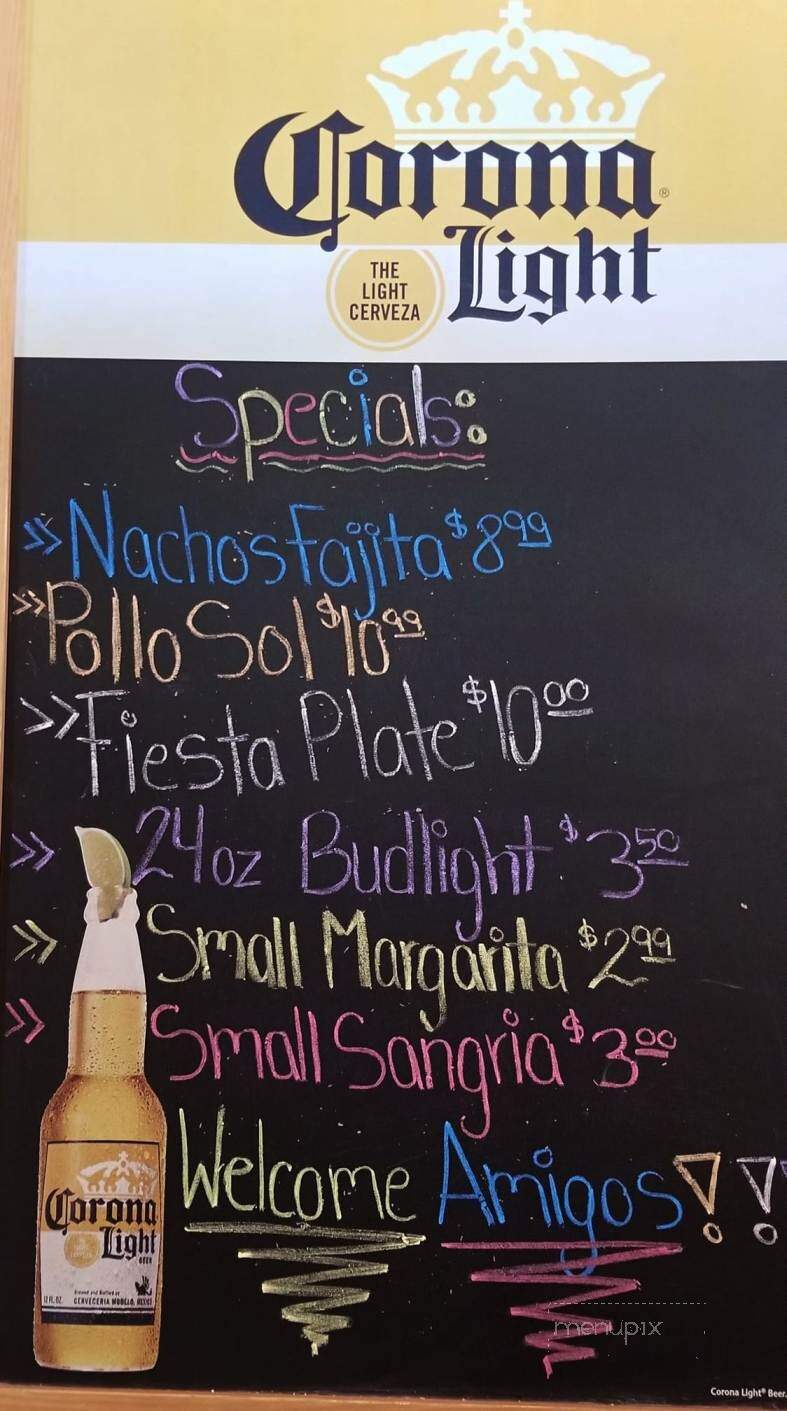 Corona®
Light
THE
LIGHT
CERVEZA
Specials:
»Nachos Fajita $8.99
»Pollo Sol $10.99
»Fiesta Plate $10.00
» 24oz Budlight $3.50
» Small Margarita $2.99
» Small Sangria $3.00
Welcome Amigos!!
Corona
Light
BEER
12 FL. OZ.
CERVECERIA MODELO, MEXICO
menupix
Corona Light® Beer.